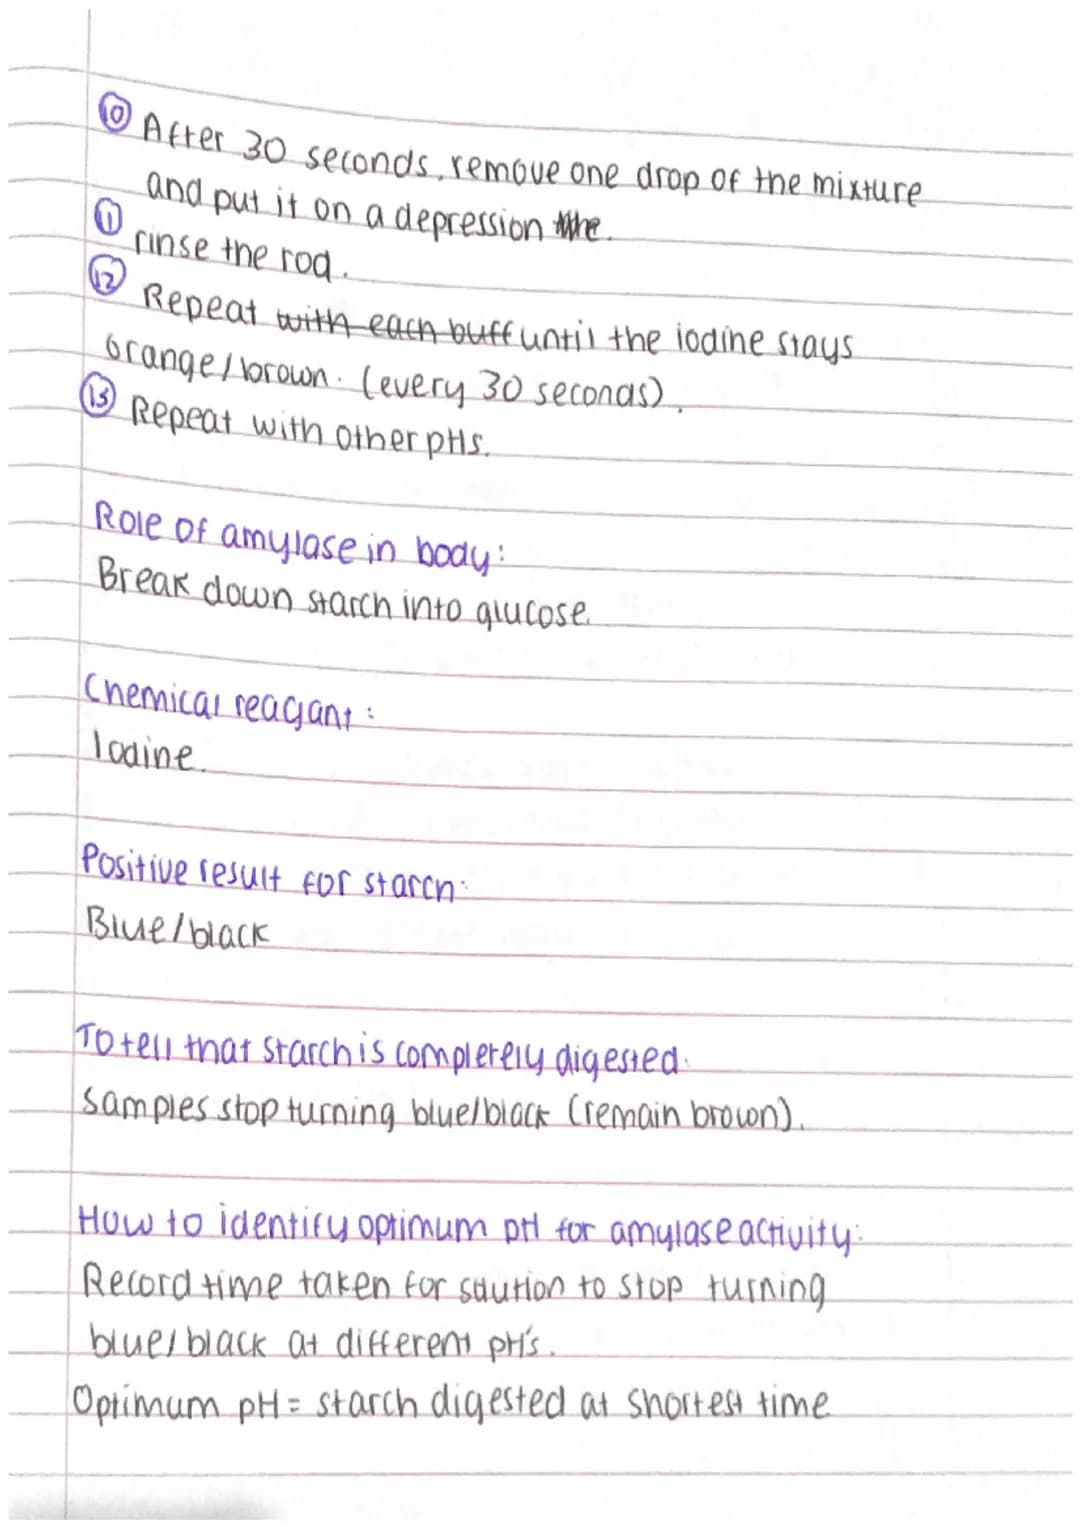 10 After 30 seconds, remove one drop of the mixture
and put it on a depression tile.
11 rinse the rod.
12 Repeat with each buff until the iodine stays
orange/brown. (every 30 seconds).
13 Repeat with other pHs.
Role of amylase in body:
Break down starch into glucose.
Chemical reagant:
Iodine.
Positive result for starch:
Blue/black
To tell that starch is completely digested:
Samples stop turning blue/black (remain brown).
How to identify optimum pH for amylase activity:
Record time taken for solution to stop turning
blue/black at different pH's.
Optimum pH = starch digested at shortest time